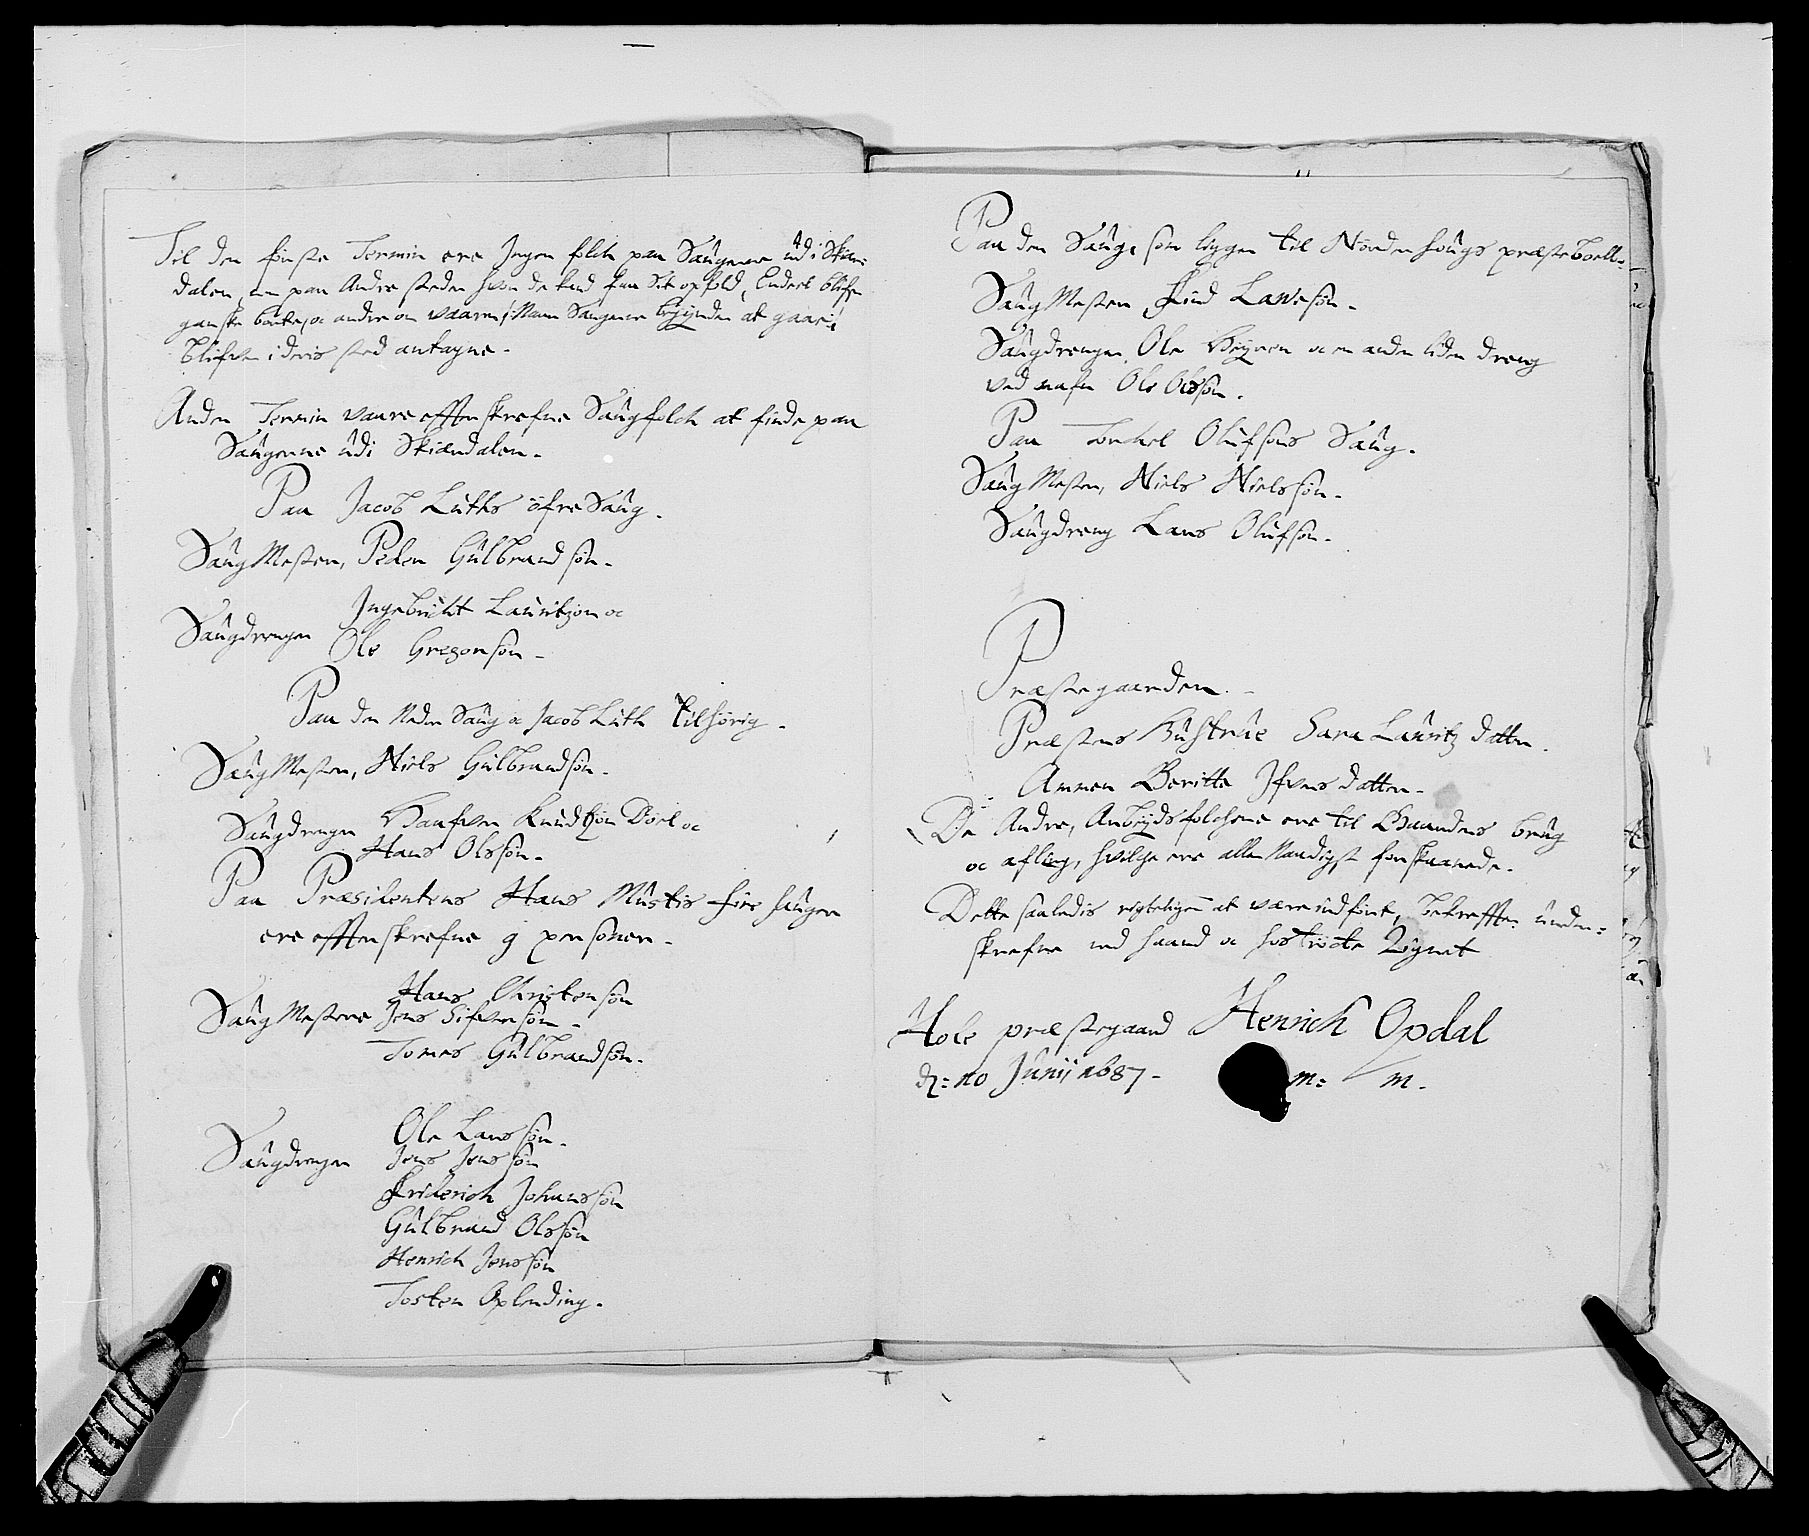 Til den første Termin ere Ingen folch paa Saugene udi Skiær-
dalen, men paa Andre steder hvor de kand faa Sit ophold, Endeel blifver
ganske borte, oc andre om vaaren /: Naar Saugene begynder at gaae :/
blifver i deris sted antagne.
Anden Termin vaare efftersKrefne Saugfolch at finde paa
Saugenne udi Skiærdalen.
Paa Jacob Luths öfre Saug.
SaugMester, Peder Gulbrandsøn.
Saugdrenger Ingebricht Lauritzøn oc
Ole Gregersøn
Paa den Neder Saug oc Jacob Luth tilhörig.
SaugMester, Niels Gulbrandsøn.
Saugdrenger Haafver Knudtzøn Döel oc
Hans Olssøn.
Paa Præsidentens Hans Mustis fire sauger
ere effterskrefne 9 personer.
SaugMestere Hans Christensøn
Jens Sifversøn
Tomes Gulbrandsøn.
Saugdrenger Ole Larssøn.
Jens Jenssøn
Friderich Johanssøn
Gulbrand Olssøn
Henrich Jenssøn
Tosten Oplending.
Paa den Saug, som ligger til Norderhougs præsteboell
SaugMester Lavesøn.
Saugdrenger, Ole oc en anden liden dreng
ved nafn Ole Olssøn.
Paa Torkel Olufsøns Saug.
SaugMester, Niels Nielssøn.
Saugdreng Lars Olufsøn.
Præstegaarden.
Præstens Hustrue Sara Lauritz datter.
Ammen Beritte Ifvers datter.
De Andre, Arbeydsfolchene ere til Gaardens brug
oc afling, hvilche ere aller Naadigst forskaanede.
Dette saaledis rigteligen at være indført, bekreffter under-
skrefne med haand oc hoströgte Zignet
Hole præstegaard Henrich Opdal
d: 10 Junij 1687. m: m.